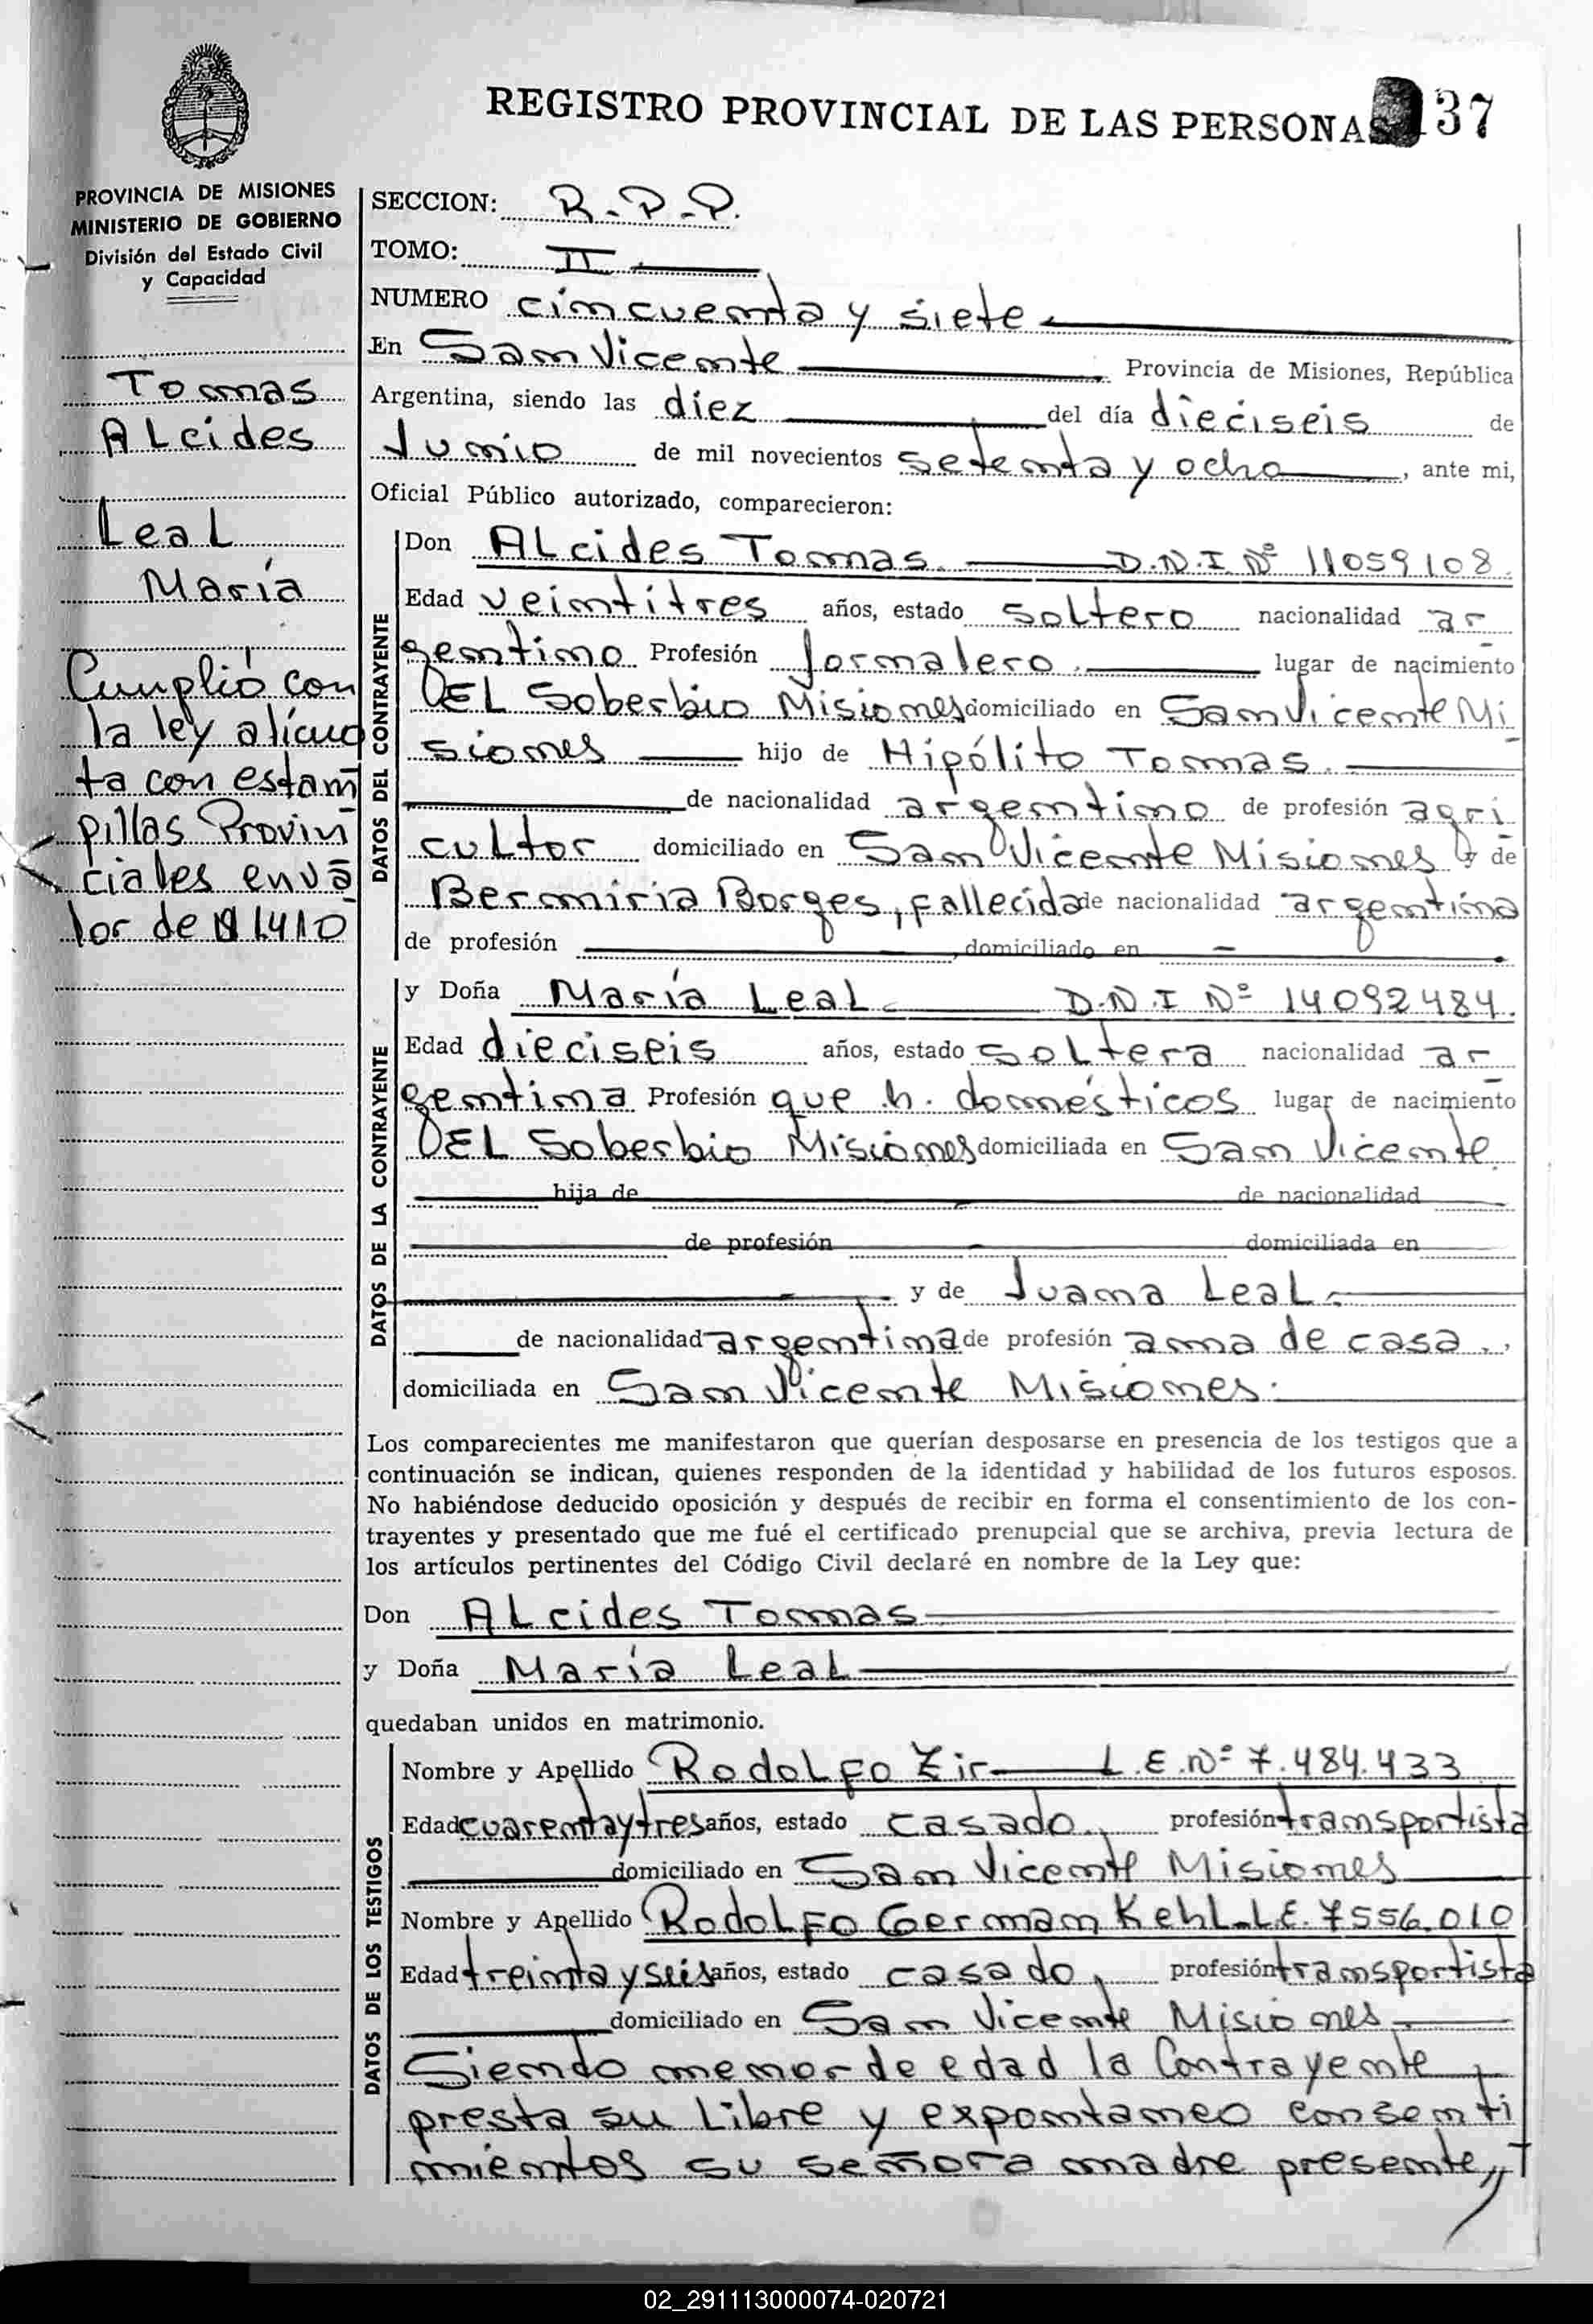 REGISTRO PROVINCIAL DE LAS PERSONAS 37
PROVINCIA DE MISIONES
MINISTERIO DE GOBIERNO
División del Estado Civil
y Capacidad
Tomas
Alcides
Leal
María
Cumplió con
la ley alícuo
ta con estam
pillas Provin
ciales en va
lor de $ 1410
SECCION: R.P.P.
TOMO: II
NUMERO cincuenta y siete
En San Vicente Provincia de Misiones, República
Argentina, siendo las diez del día dieciseis de
Junio de mil novecientos setenta y ocho, ante mi,
Oficial Público autorizado, comparecieron:
DATOS DEL CONTRAYENTE
Don Alcides Tomas. D.N.I. Nº 11059108
Edad veintitres años, estado soltero nacionalidad ar-
gentino Profesión Jornalero. lugar de nacimiento
El Soberbio Misiones domiciliado en San Vicente Mi
siones hijo de Hipólito Tomas.
de nacionalidad argentino de profesión agri
cultor domiciliado en San Vicente Misiones y de
Bermiria Borges, fallecida de nacionalidad argentina
de profesión , domiciliado en
DATOS DE LA CONTRAYENTE
y Doña María Leal D.N.I Nº 14092484.
Edad dieciseis años, estado soltera nacionalidad ar-
gentina Profesión que h. domésticos lugar de nacimiento
El Soberbio Misiones domiciliada en San Vicente
hija de de nacionalidad
de profesión domiciliada en
y de Juana Leal.
de nacionalidad argentina de profesión ama de casa.,
domiciliada en San Vicente Misiones.
Los comparecientes me manifestaron que querían desposarse en presencia de los testigos que a
continuación se indican, quienes responden de la identidad y habilidad de los futuros esposos.
No habiéndose deducido oposición y después de recibir en forma el consentimiento de los con-
trayentes y presentado que me fué el certificado prenupcial que se archiva, previa lectura de
los artículos pertinentes del Código Civil declaré en nombre de la Ley que:
Don Alcides Tomas
y Doña María Leal
quedaban unidos en matrimonio.
DATOS DE LOS TESTIGOS
Nombre y Apellido Rodolfo Zir L.E.Nº 7.484.433
Edad cuarenta y tres años, estado casado, profesión transportista
domiciliado en San Vicente Misiones
Nombre y Apellido Rodolfo German Kehl. L.E. 7556.010
Edad treinta y seis años, estado casado, profesión transportista
domiciliado en San Vicente Misiones.
Siendo menor de edad la Contrayente
presta su Libre y expontaneo consenti
mientos su señora madre presente,,
02_291113000074-020721